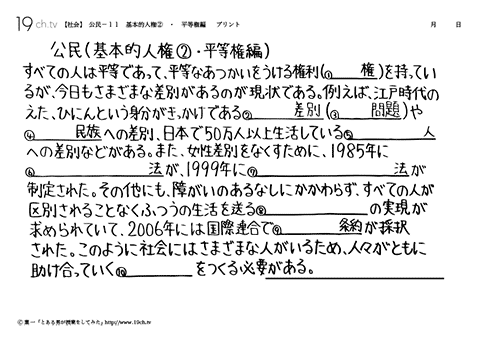 19ch.tv 【社会】 公民－11 基本的人権② ・ 平等権編 プリント 月 日
公民(基本的人権②・平等権編)
すべての人は平等であって、平等なあつかいをうける権利(① 権)を持ってい
るが、今日もさまざまな差別があるのが現状である。例えば、江戸時代の
えた、ひにんという身分がきっかけである② 差別(③ 問題)や
④ 民族への差別、日本で50万人以上生活している⑤ 人
への差別などがある。また、女性差別をなくすために、1985年に
⑥ 法が、1999年に⑦ 法が
制定された。その他にも、障がいのあるなしにかかわらず、すべての人が
区別されることなくふつうの生活を送る⑧ の実現が
求められていて、2006年には国際連合で⑨ 条約が採択
された。このように社会にはさまざまな人がいるため、人々がともに
助け合っていく⑩ をつくる必要がある。
© 葉一「とある男が授業をしてみた」http://www.19ch.tv